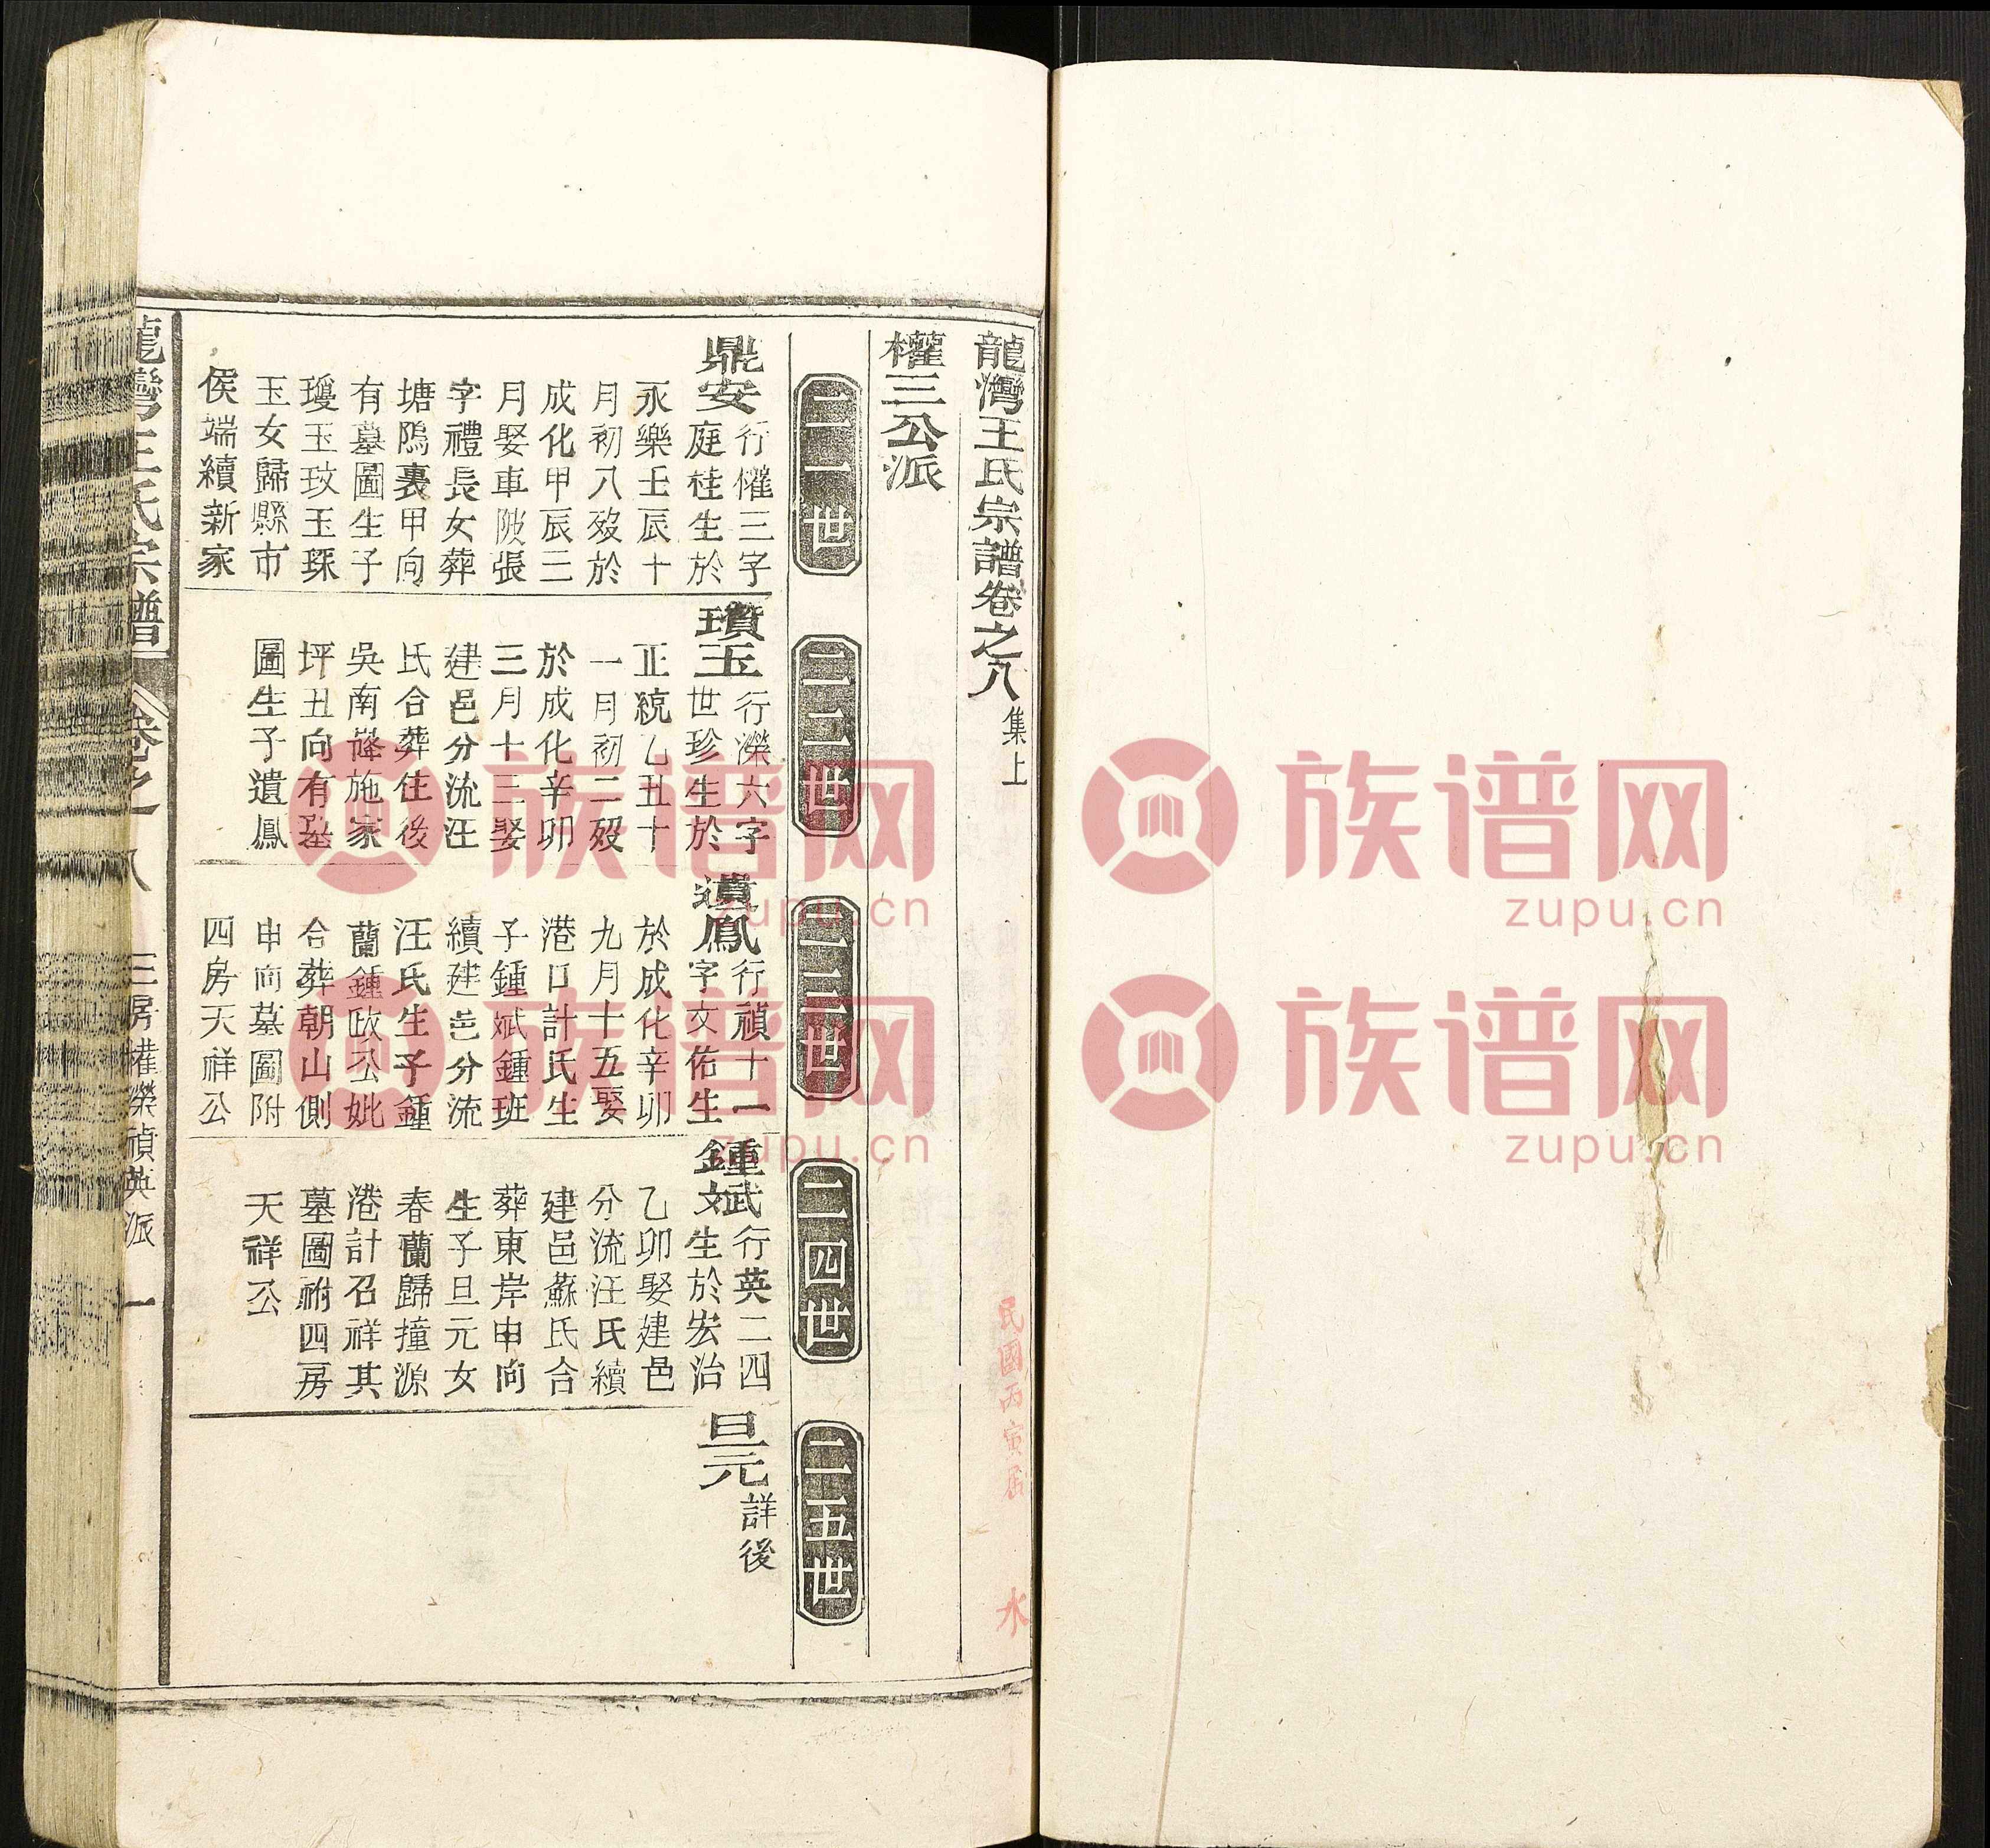 龍灣王氏宗譜卷之八
集上
民國丙寅届
水
權三公派
二一世
二二世
二三世
二四世
二五世
鼎安
行權三字
庭桂生於
永樂壬辰十
月初八歿於
成化甲辰三
月娶車陂張
字禮長女葬
塘隖裏甲向
有墓圖生子
瓊玉玟玉琛
玉女歸縣市
侯端續新家
瓚玉
行濼六字
世珍生於
正統乙丑十
一月初二歿
於成化辛卯
三月十三娶
建邑分流汪
氏合葬住後
吳南峰施家
坪丑向有墓
圖生子遺鳳
遺鳳
行禎十一
字文佑生
於成化辛卯
九月十五娶
港口計氏生
子鍾斌鍾班
續建邑分流
汪氏生子鍾
蘭鍾政公妣
合葬朝山側
申向墓圖附
四房天祥公
鍾斌
行英二四
生於宏治
乙卯娶建邑
分流汪氏續
建邑蘇氏合
葬東岸申向
生子旦元女
春蘭歸撞源
港計召祥其
墓圖祔四房
天祥公
旦元
詳後
龍灣王氏宗譜
卷之八
三房權濼禎英派
一
族谱网
zupu.cn
族谱网
zupu.cn
族谱网
zupu.cn
族谱网
zupu.cn